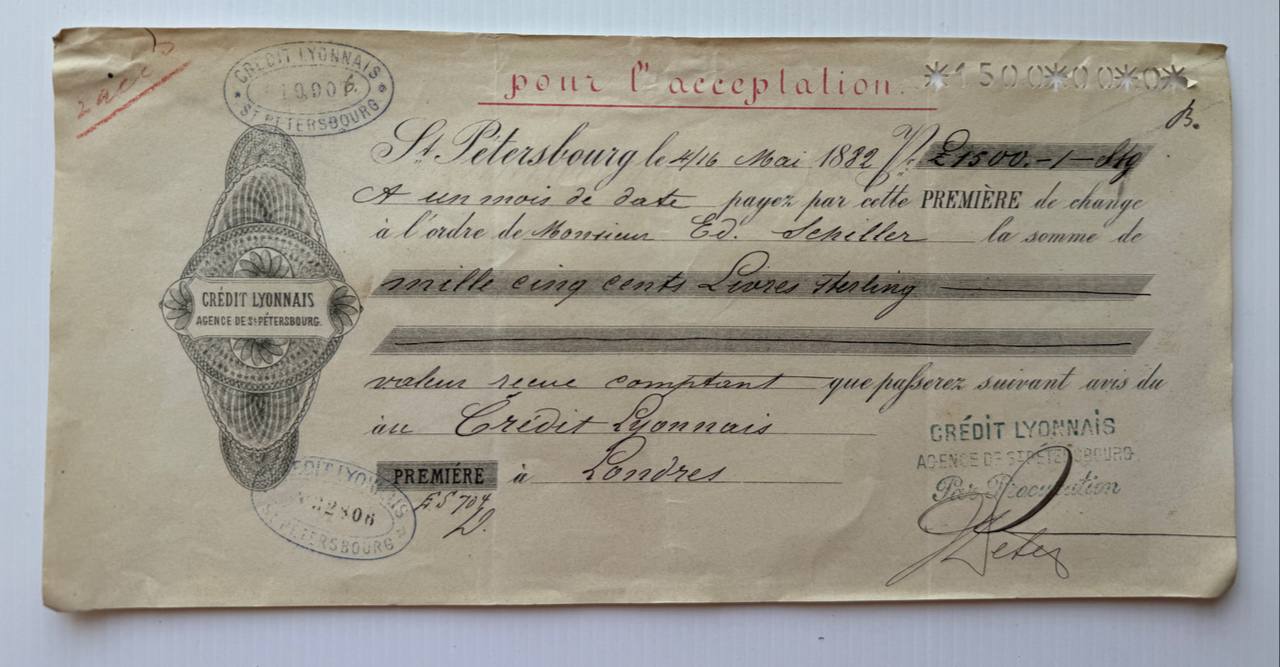 CRÉDIT LYONNAIS
ST PETERSBOURG
pour l'' acceptation. *1500*00*0*
B.
St. Pétersbourg le 4/16 Mai 1882 Pr. £1500.-1- Stg
A un mois de date payez par cette PREMIÈRE de change
à l'ordre de Monsieur Ed. Schiller la somme de
mille cinq cents Livres Sterling
valeur reçue comptant que passerez suivant avis du
au Crédit Lyonnais
PREMIÉRE à Londres
CRÉDIT LYONNAIS
AGENCE DE ST PÉTERSBOURG.
CRÉDIT LYONNAIS
AGENCE DE ST PÉTERSBOURG.
Par Procuration
E.S 704
CRÉDIT LYONNAIS
32806
ST PETERSBOURG